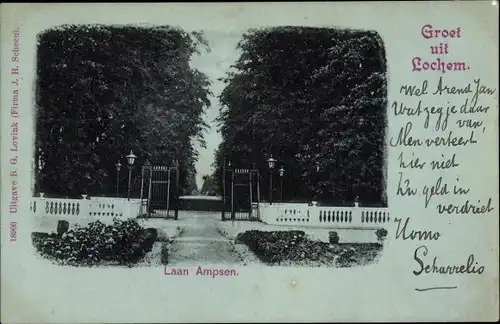 Groet
uit
Lochem.
Wel Arend Jan
Wat zeg je daar
van,
Men verteert
hier niet
z'n geld in
verdriet
Homo
Scharrelio
Laan Ampsen.
18900 Uitgave R. G. Lovink (Firma J. H. Scheen).